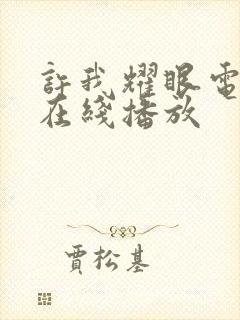 許我耀眼電
在綫播放
賈松基